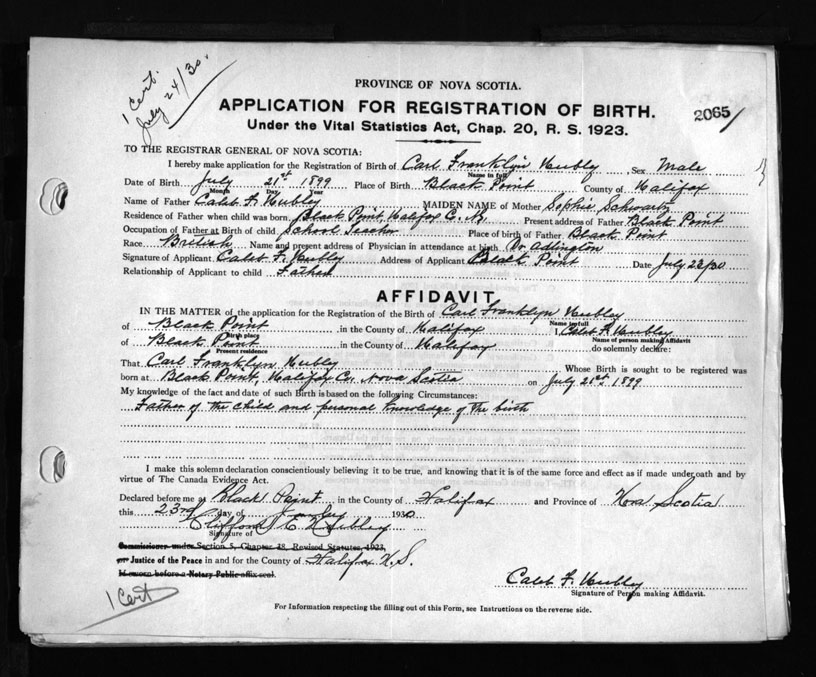 1 Cert.
July 24/30.
PROVINCE OF NOVA SCOTIA.
APPLICATION FOR REGISTRATION OF BIRTH.
2065/
Under the Vital Statistics Act, Chap. 20, R. S. 1923.
TO THE REGISTRAR GENERAL OF NOVA SCOTIA:
I hereby make application for the Registration of Birth of Carl Franklyn Hubley Sex Male
Name in full
Date of Birth July 21st 1899 Place of Birth Black Point County of Halifax
Month Day Year
Name of Father Caleb F. Hubley MAIDEN NAME of Mother Sophie Schwartz
Residence of Father when child was born Black Point, Halifax Co. Present address of Father Black Point
Occupation of Father at Birth of child School Teacher Place of birth of Father Black Point
Race British Name and present address of Physician in attendance at birth Dr Adlington
Signature of Applicant Caleb F. Hubley Address of Applicant Black Point Date July 23/30
Relationship of Applicant to child Father
AFFIDAVIT
IN THE MATTER of the application for the Registration of the Birth of Carl Franklyn Hubley
Name in full
of Black Point in the County of Halifax I, Caleb F. Hubley
Birth place Name of person making Affidavit
of Black Point in the County of Halifax do solemnly declare:
Present residence
That Carl Franklyn Hubley Whose Birth is sought to be registered was
born at Black Point, Halifax Co., Nova Scotia on July 21st 1899
My knowledge of the fact and date of such Birth is based on the following Circumstances:
Father of the child and personal knowledge of the birth
I make this solemn declaration conscientiously believing it to be true, and knowing that it is of the same force and effect as if made under oath and by
virtue of The Canada Evidence Act.
Declared before me at Black Point in the County of Halifax and Province of Nova Scotia
this 23rd day of July 1930
Clifford E. Hubley
Signature of
Commissioner under Section 5, Chapter 38, Revised Statutes, 1923,
or Justice of the Peace in and for the County of Halifax N.S.
If sworn before a Notary Public affix seal.
Caleb F. Hubley
Signature of Person making Affidavit.
1 Cert
For Information respecting the filling out of this Form, see Instructions on the reverse side.